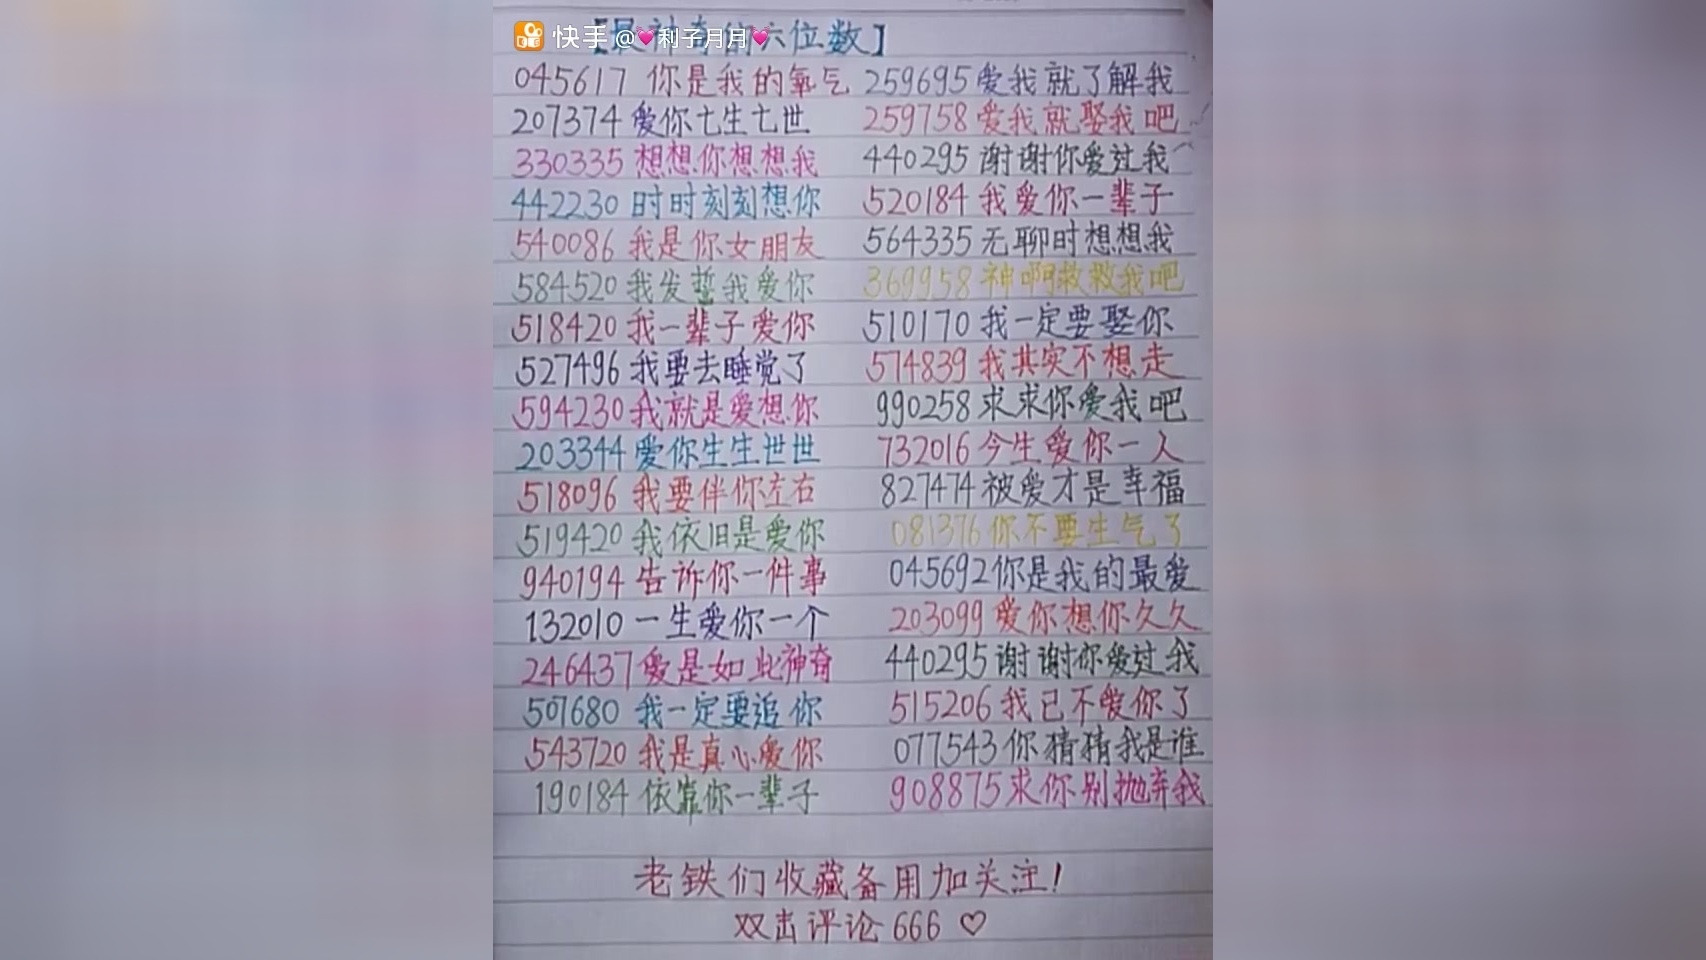 快手 @💗利子月月💗
【最神奇的六位数】
045617 你是我的氧气 259695 爱我就了解我
207374 爱你七生七世 259758 爱我就娶我吧
330335 想想你想想我 440295 谢谢你爱过我
442230 时时刻刻想你 520184 我爱你一辈子
540086 我是你女朋友 564335 无聊时想想我
584520 我发誓我爱你 369958 神啊救救我吧
518420 我一辈子爱你 510170 我一定要娶你
527496 我要去睡觉了 574839 我其实不想走
594230 我就是爱想你 990258 求求你爱我吧
203344 爱你生生世世 732016 今生爱你一人
518096 我要伴你左右 827474 被爱才是幸福
519420 我依旧是爱你 081376 你不要生气了
940194 告诉你一件事 045692 你是我的最爱
132010 一生爱你一个 203099 爱你想你久久
246437 爱是如此神奇 440295 谢谢你爱过我
507680 我一定要追你 515206 我已不爱你了
543720 我是真心爱你 077543 你猜猜我是谁
190184 依靠你一辈子 908875 求你别抛弃我
老铁们收藏备用加关注!
双击评论 666 ♡